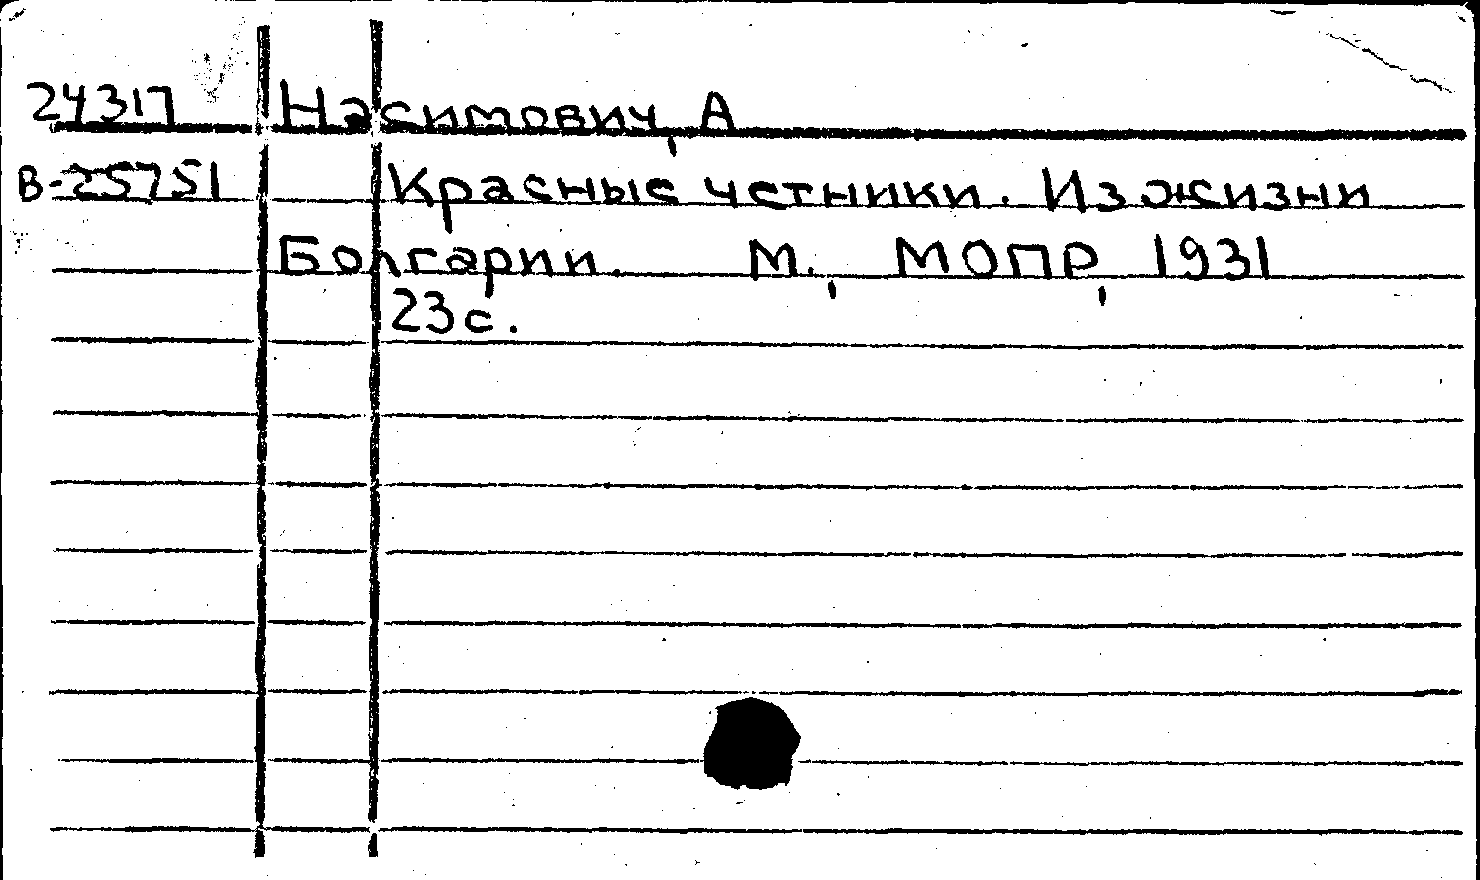 24317 Насимович, А
В-25751 Красные четники. Из жизни
Болгарии. М., МОПР, 1931
23с.